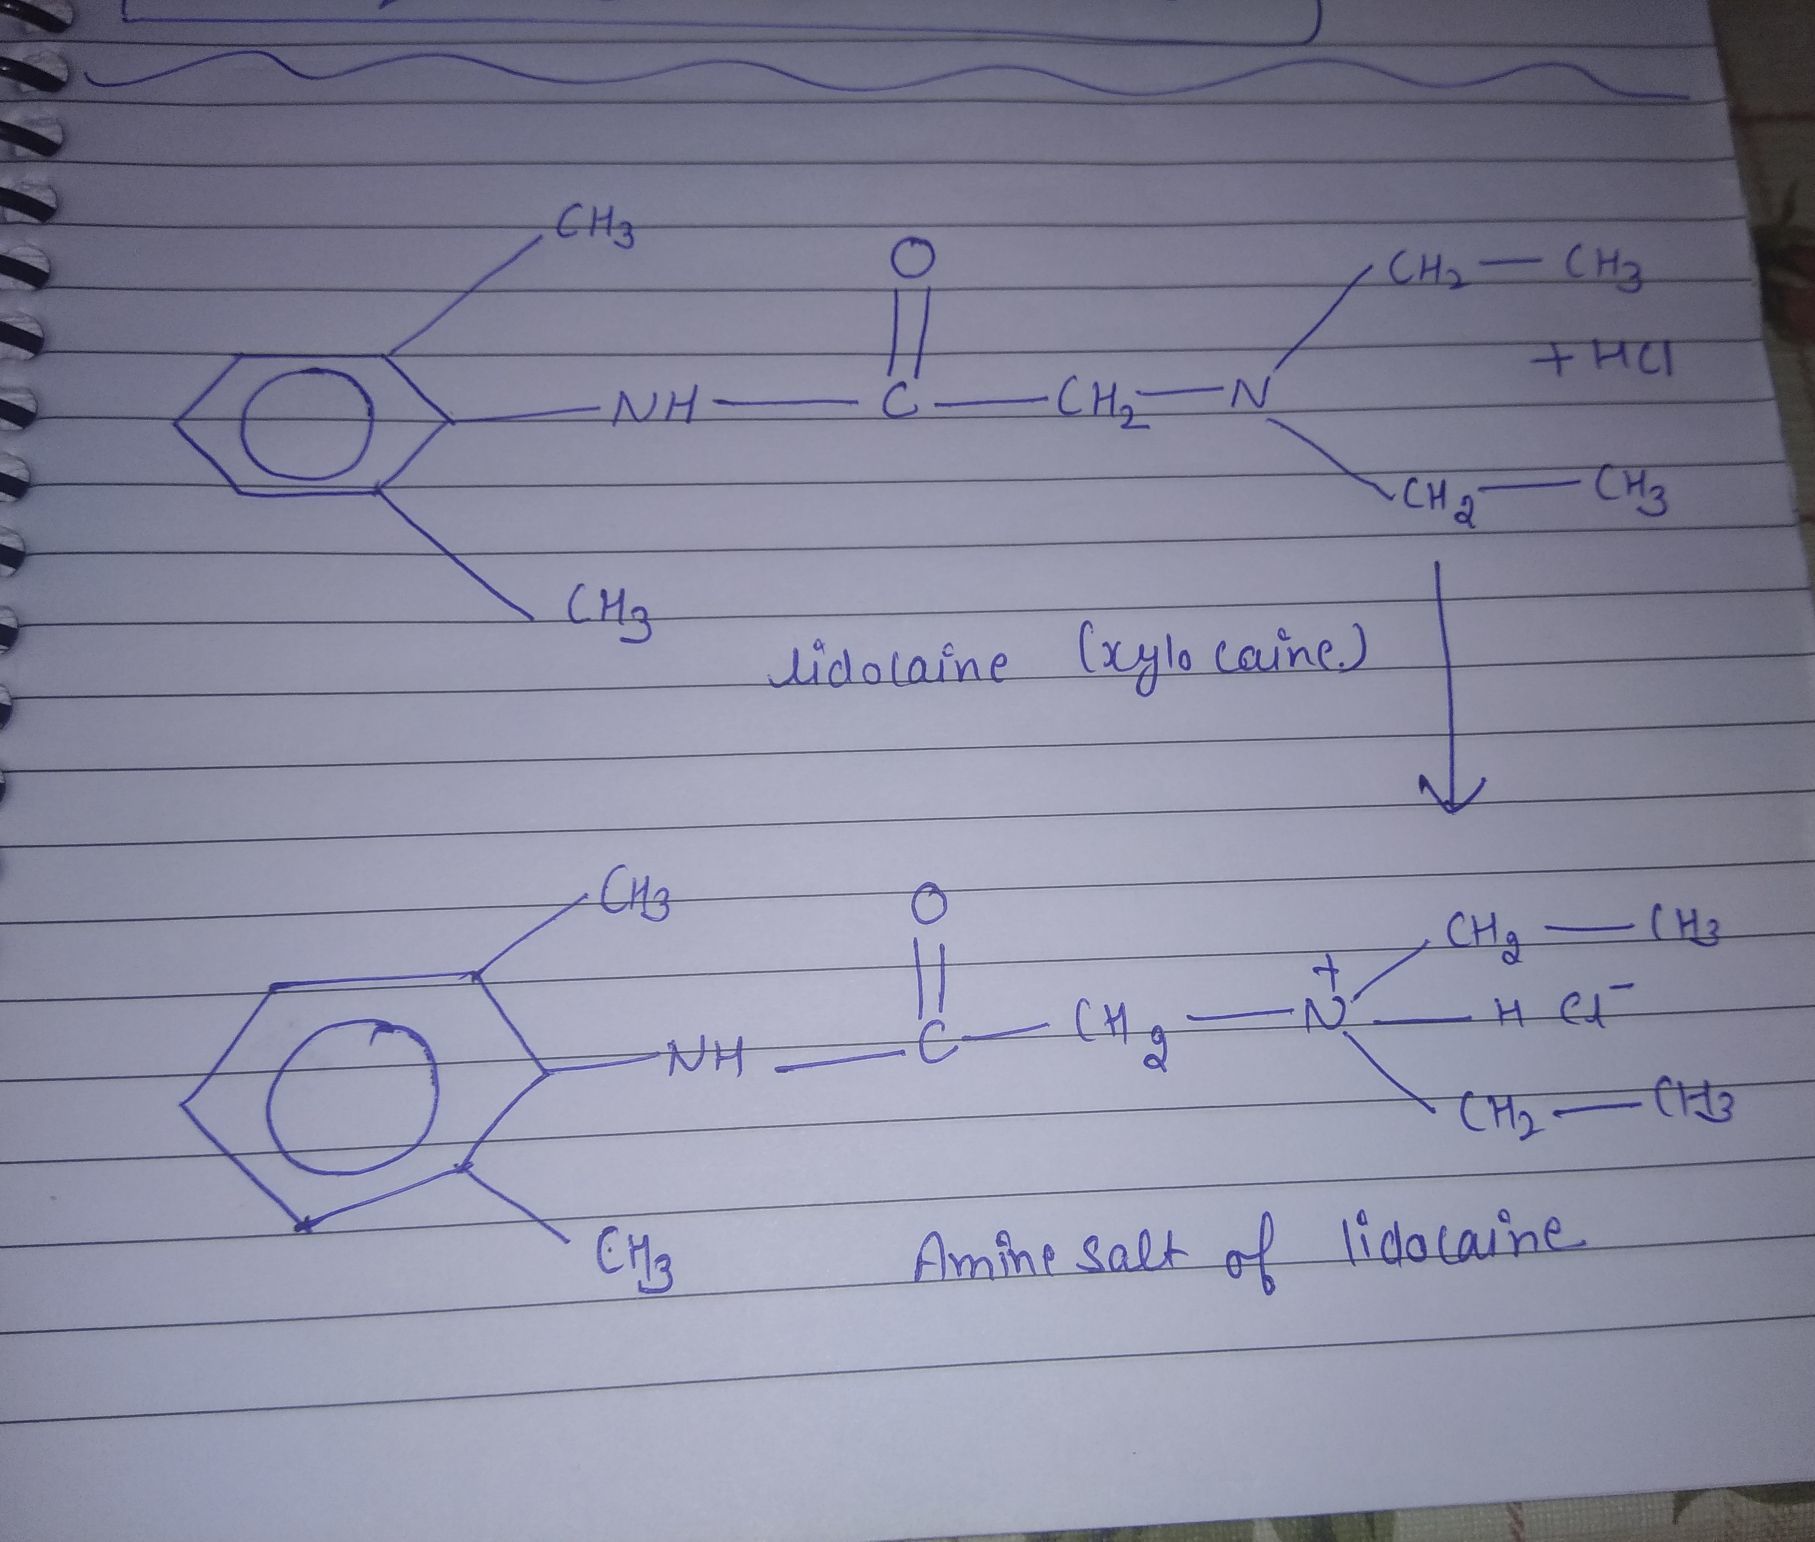 CH3
O
CH2 — CH3
+ HCl
NH — C — CH2 — N
CH2 — CH3
CH3
lidocaine (xylo caine)
CH3
O
CH2 — CH3
+
NH — C — CH2 — N — H Cl⁻
CH2 — CH3
CH3
Amine salt of lidocaine